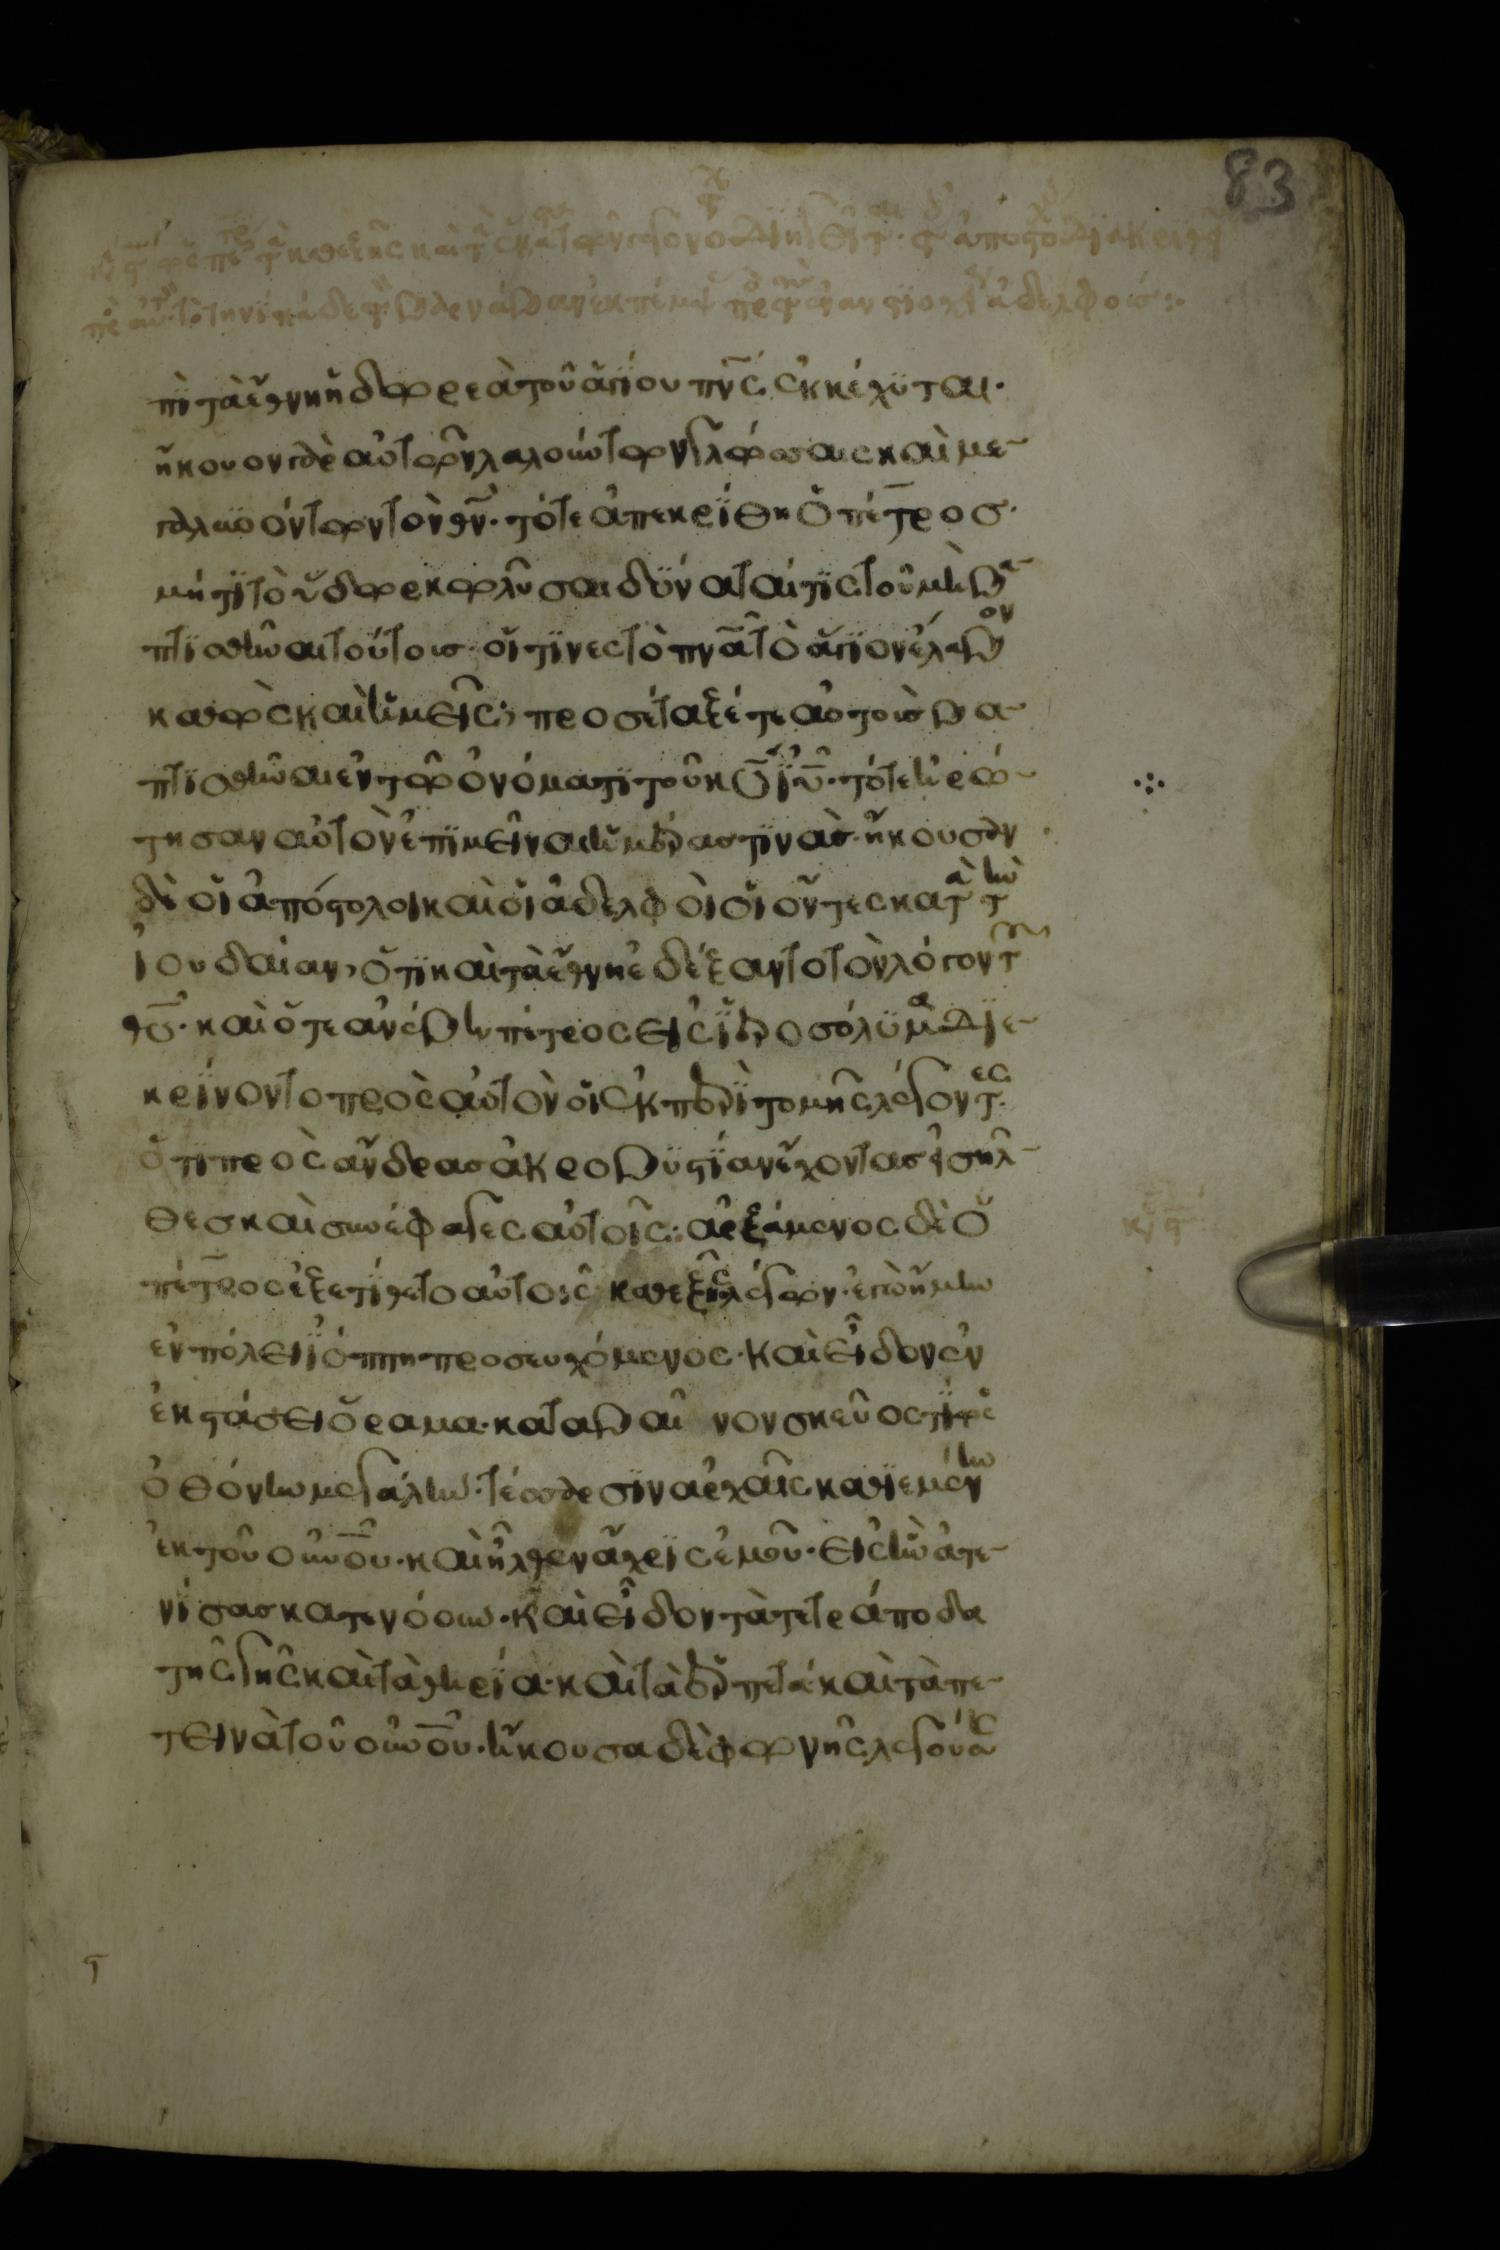 83
πὶ τὰ ἔθνη ἡ δωρεὰ τοῦ ἁγίου πν̅ς ἐκκέχυται·
ἤκουον γὰρ αὐτῶν λαλούντων γλώσσαις καὶ με
γαλυνόντων τὸν θν̅· τότε ἀπεκρίθη ὁ πέτρος·
μήτι τὸ ὕδωρ κωλῦσαι δύναταί τις τοῦ μὴ βα
πτισθῆναι τούτους· οἵτινες τὸ πνα̅ τὸ ἅγιον ἔλαβον
καθὼς καὶ ἡμεῖς; προσέταξέ τε αὐτοὺς βα
πτισθῆναι ἐν τῷ ὀνόματι τοῦ κυ̅ ἰυ̅· τότε ἠρώ
τησαν αὐτὸν ἐπιμεῖναι ἡμέρας τινάς· ἤκουσαν
δὲ οἱ ἀπόστολοι καὶ οἱ ἀδελφοὶ οἱ ὄντες κατὰ τὴν
ἰουδαίαν, ὅτι καὶ τὰ ἔθνη ἐδέξαντο τὸν λόγον τοῦ
θυ̅· καὶ ὅτε ἀνέβη πέτρος εἰς ἱεροσόλυμα διε
κρίνοντο πρὸς αὐτὸν οἱ ἐκ περιτομῆς λέγοντες
ὅτι πρὸς ἄνδρας ἀκροβυστίαν ἔχοντας εἰσῆλ
θες καὶ συνέφαγες αὐτοῖς: ἀρξάμενος δὲ ὁ
πέτρος ἐξετίθετο αὐτοῖς καθεξῆς λέγων· ἐγὼ ἤμην
ἐν πόλει ἰόππη προσευχόμενος· καὶ εἶδον ἐν
ἐκστάσει ὅραμα· καταβαῖνον σκεῦός τι ὡς
ὀθόνην μεγάλην· τέσσαρσιν ἀρχαῖς καθιεμένην
ἐκ τοῦ οὐνου̅· καὶ ἦλθεν ἄχρις ἐμοῦ· εἰς ἣν ἀτε
νίσας κατενόουν· καὶ εἶδον τὰ τετράποδα
τῆς γῆς καὶ τὰ θηρία· καὶ τὰ ἑρπετά· καὶ τὰ πε
τεινὰ τοῦ οὐνου̅· ἤκουσα δὲ φωνῆς λεγούσης